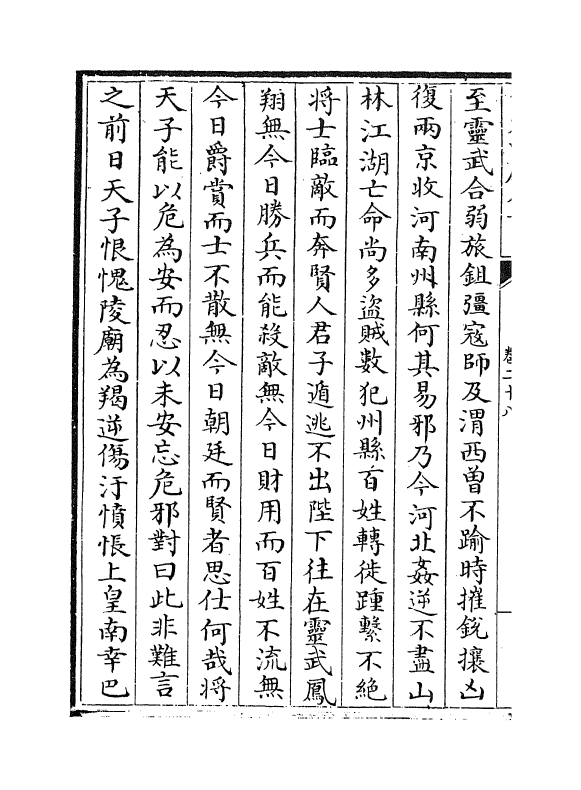 至靈武合弱旅鉏彊寇師及渭西曽不踰時摧鋭攘凶
復兩京收河南州縣何其易邪乃今河北姦逆不盡山
林江湖亡命尚多盜賊數犯州縣百姓轉徙踵繫不絶
将士臨敵而奔賢人君子遁逃不出陛下往在靈武鳳
翔無今日勝兵而能殺敵無今日財用而百姓不流無
今日爵賞而士不散無今日朝廷而賢者思仕何哉将
天子能以危為安而忍以未安忘危邪對曰此非難言
之前日天子恨愧陵廟為羯逆傷汙憤悵上皇南幸巴
卷二十八